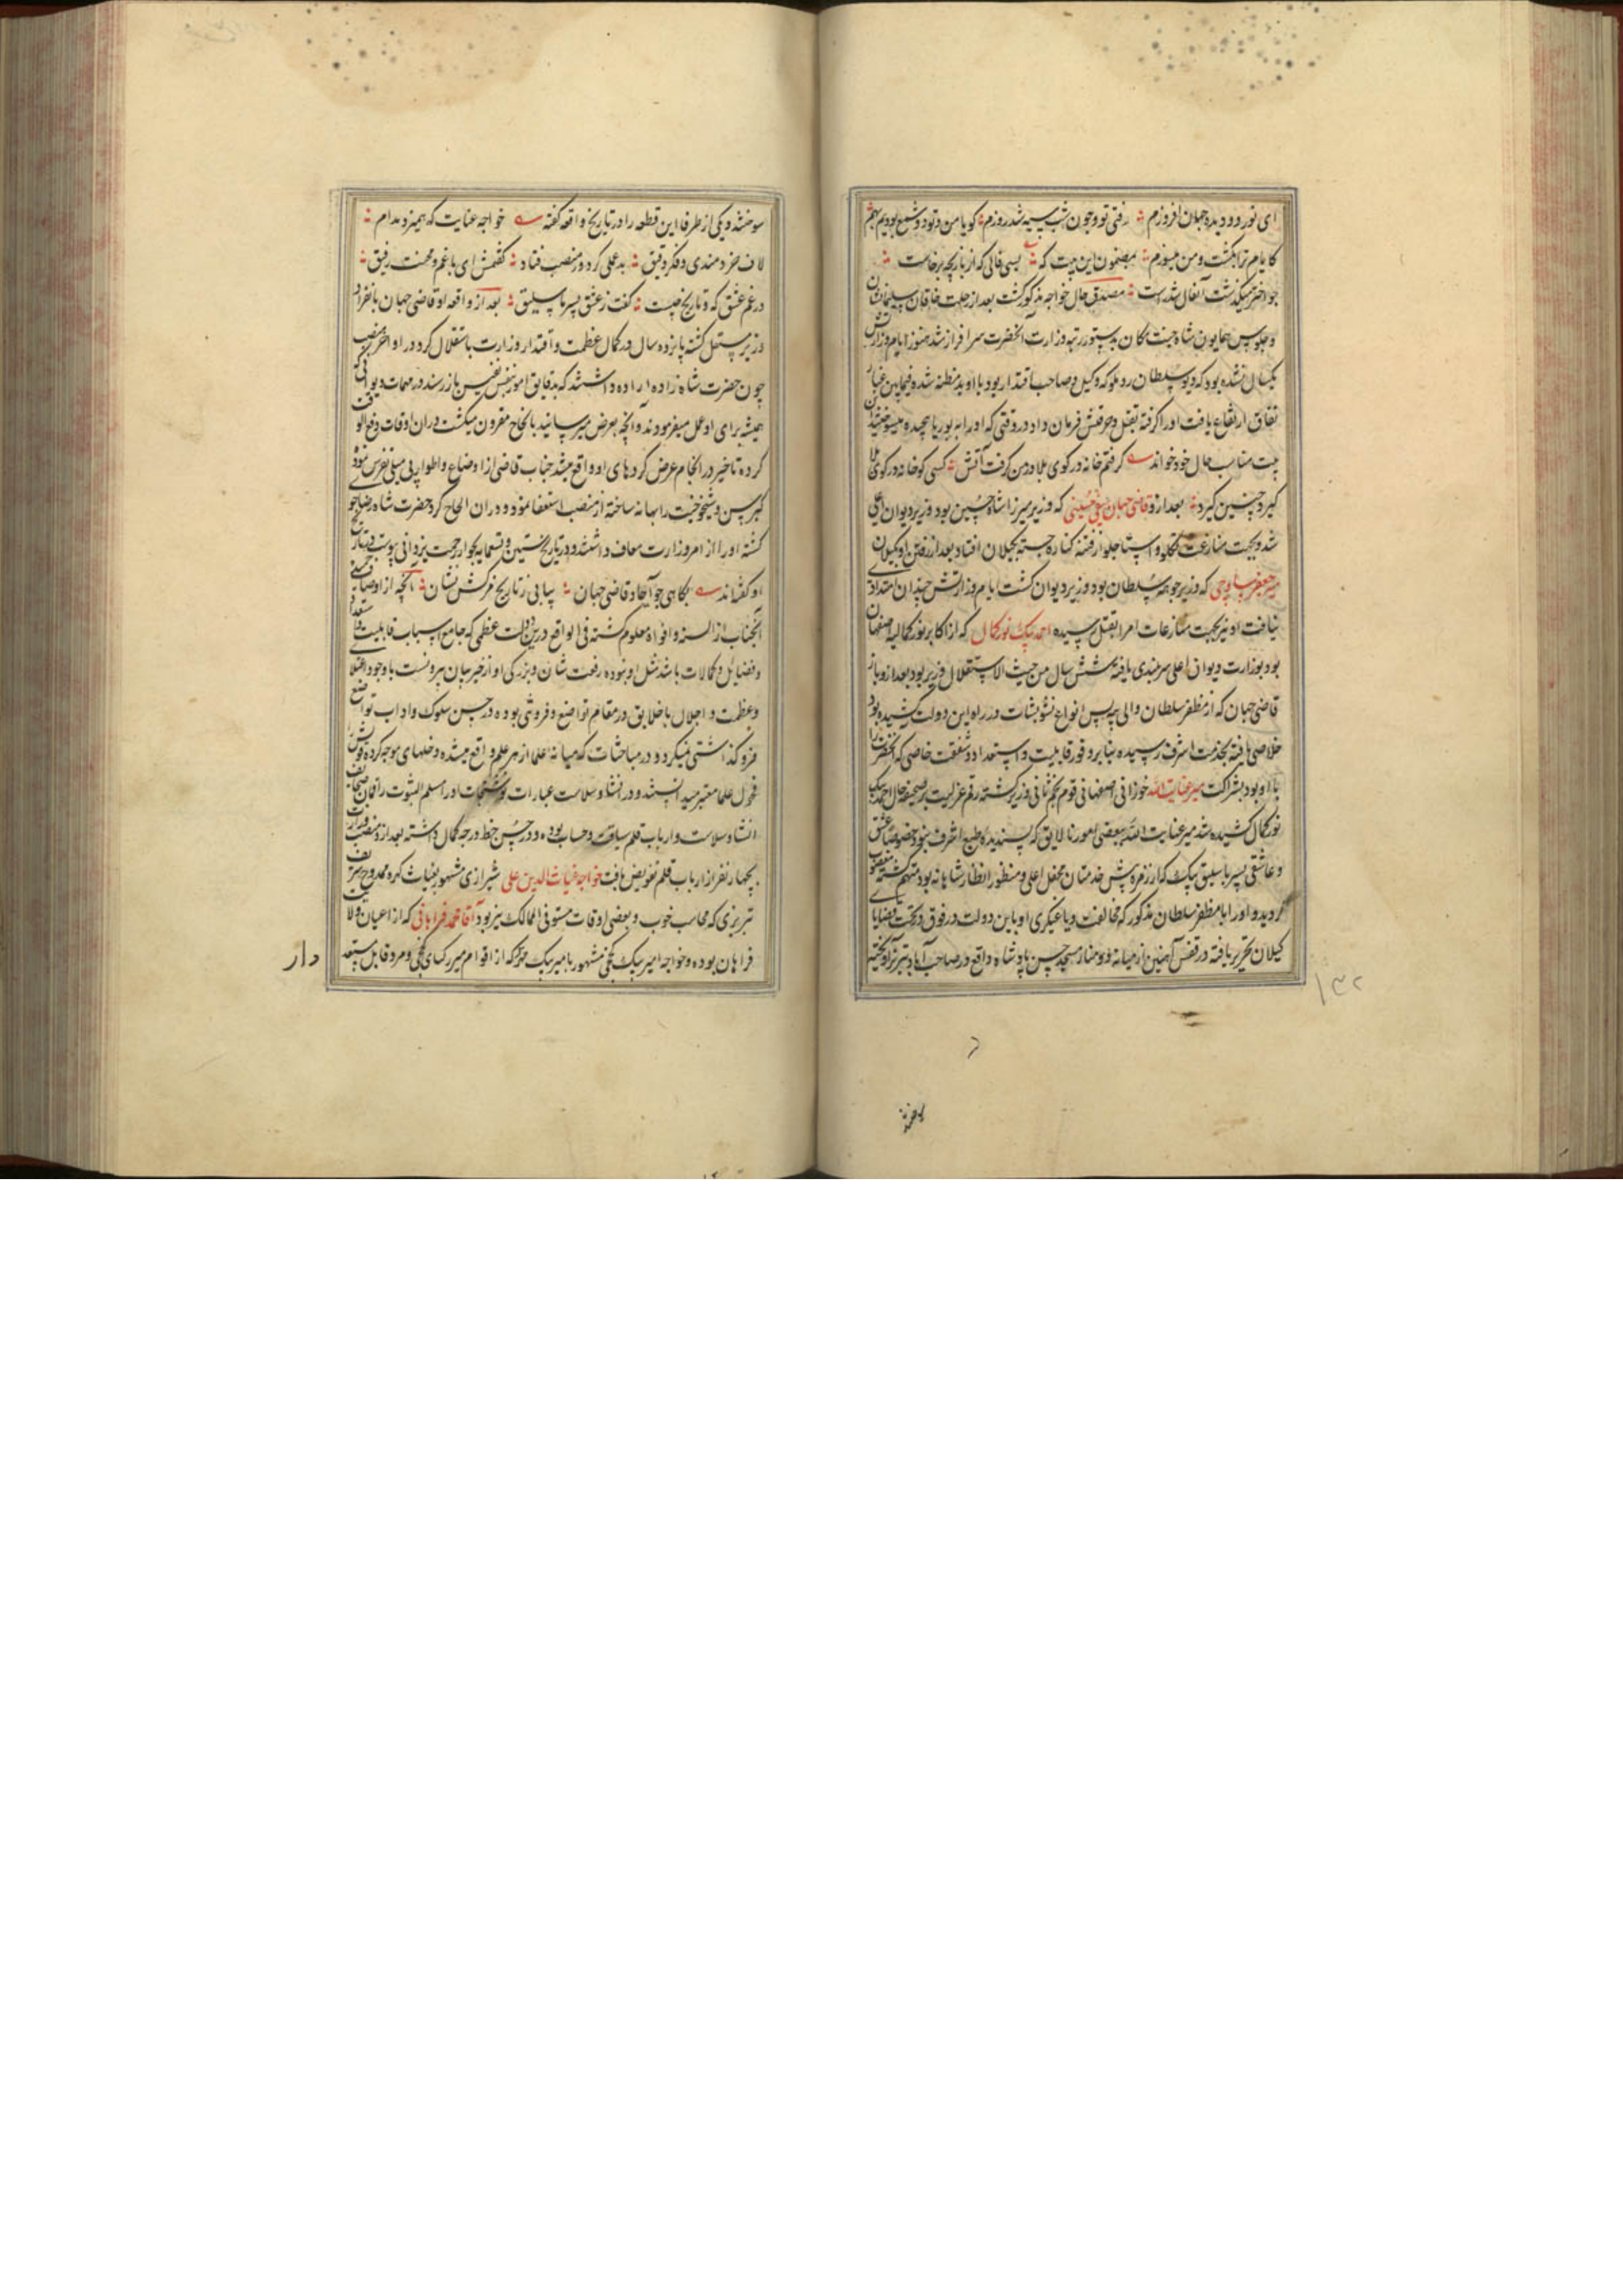 ای نور دو دیده جهان افروزم رفتی تو و چون شب سیه شد روزم گویا من و تو دو شمع بودیم بهم
کایام ترا بکشت و من میسوزم بمضمون این بیت که بسی فالی که از بازیچه برخاست
چو اختر میگذشت آنفال شد راست مصدق حال خواجه مذکور گشت بعد از رحلت خاقان سلیمان شان
و جلوس همایون شاه جنت مکان بدستور رتبه وزارت آنحضرت سرافراز شد هنوز ایام وزارتش
یکسال نشده بود که دیو سلطان روملو که وکیل و صاحب اقتدار بود با او بدمظنه شده فیمابین غبار
نفاق ارتفاع یافت او را گرفته بقتل و حرقش فرمان داد در وقتی که او را به بوریا پیچیده میسوختند این
بیت مناسب حال خود خواند گرفتم خانه در کوی بلا در من گرفت آتش کسی کو خانه در کوی بلا
گیرد چنین گیرد بعد ازو قاضی جهان سیفی حسینی که وزیر میرزا شاه حسین بود وزیر دیوان اعلی
شد و بجهت منازعت تکلو و استاجلو از فتنه کناره جسته بگیلان افتاد بعد از رفتن او بگیلان
میر جعفر ساوجی که وزیر جوهه سلطان بود وزیر دیوان گشت ایام وزارتش چندان امتدادی
نیافت او نیز بجهت منازعات امرا بقتل رسیده احمد بیک نور کمال که از اکابر نور کمالیه صفهان
بود بوزارت دیوان اعلی سربلندی یافته شش سال من حیث الاستقلال وزیر بود بعد ازو باز
قاضی جهان که از مظفر سلطان والی بیه پس انواع تشویشات در راه این دولت کشیده بود
خلاصی یافته بخدمت اشرف رسیده بنابر وفور قابلیت و استعداد و شفقت خاصی که آنحضرت را
با او بود بشراکت میر عنایت الله خوزانی اصفهانی قوم نجم ثانی وزیر گشته رقم عزلت بر صحیفه حال احمد بیک
نور کمال کشیده شد میر عنایت الله ببعضی امور نالایق که پسندیده طبع اشرف نبود خصوصا عشق
و عاشقی پسر باسلیق بیک که از زمره پیش خدمتان محفل اعلی و منظور انظار شاهانه بود متهم گشته مغضوب
گردید و او را با مظفر سلطان مذکور که مخالفت و یاغیگری او باین دولت در فوق در تحت قضایای
گیلان تحریر یافته در قفس آهنین از میانه دو منار مسجد حسن پادشاه واقع در صاحب آباد تبریز آویخته
۱۳۲
سوختند
سوختند و یکی از ظرفا این قطعه را در تاریخ واقعه گفته خواجه عنایت که همیزد مدام
لاف خردمندی و فکر دقیق بدعملی کرد و ز منصب فتاد گفتمش ای با غم و محنت رفیق
در غم عشق که و تاریخ چیست گفت ز عشق پسر باسلیق بعد از واقعه او قاضی جهان بانفراد
وزیر مستقل گشته پانزده سال در کمال عظمت و اقتدار وزارت باستقلال کرد در اواخر منصب
چون حضرت شاه زاده اراده داشتند که بدقایق امور بنفس نفیس باز رسند در مهمات دیوانی که
همیشه برای او عمل میفرمودند و آنچه بعرض میرسانید بانجاح مقرون میگشت در آن اوقات دفع الوقت
کرده تاخیر در انجام عرض کردهای او واقع میشد جناب قاضی از اوضاع و اطوار بی میلی تفرس نموده
کبر سن و شیخوخیت را بهانه ساخته از منصب استعفا نمود و در آن الحاح کرد حضرت شاه رضاجو
گشته او را از امر وزارت معاف داشتند و در تاریخ ستین و تسعمایه بجوار رحمت یزدانی پیوست در تاریخ
او گفته‌اند بکاهی چو آحاد قاضی جهان بیابی ز تاریخ مرگش نشان آنچه از اوصاف حسنه
آنجناب از السنه و افواه معلوم گشته فی الواقع درین دولت عظمی که جامع اسباب قابلیت و استعداد
و فضایل و کمالات باشد مثل او نبوده رفعت شان و بزرگی او از خیر بیان بیرونست با وجود اعتلا
و عظمت و اجلال با خلایق در مقام تواضع و فروتنی بوده در حسن سلوک و آداب تواضع
فروگذاشتی نمیکرد و در مباحثات که میانه علما از هر علم واقع میشده دخلهای موجه کرده
فحول علما معتبر میدانستند و در انشا و سلاست عبارات و منشآت او را مسلم الثبوت راقمان صحایف
انشا و سلاست و ارباب قلم سیاقت و حساب بوده و در حسن خط درجه کمال داشته بعد ازو منصب وزارت
بچهار نفر از ارباب قلم تفویض یافت خواجه غیاث الدین علی شیرازی مشهور بغیاث کره ممدوح شریف
تبریزی که محاسب خوب و بعضی اوقات مستوفی الممالک نیز بود آقا محمد فراهانی که از اعیان ولایت
فراهان بوده و خواجه امیر بیک کججی مشهور بامیر بیک مهرکه از اقوام میر زکیای کججی و مرد قابل مستعد
دار